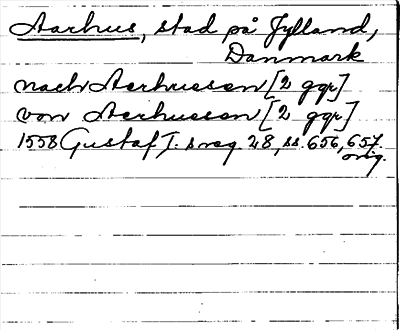 Aarhus, stad på Jylland,
Danmark
nach Aerhussen [2 ggr]
von Aerhussen [2 ggr]
1558 Gustaf I. s reg. 28, ss. 656, 657.
orig.